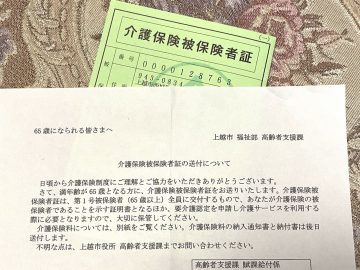 介護保険被保険者証
番号
0000128763
943-083
上越市
65歳になられる皆さまへ
上越市 福祉部 高齢者支援課
介護保険被保険者証の送付について
日頃から介護保険制度にご理解とご協力をいただきありがとうございます。
さて、満年齢が65歳となる方に、介護保険被保険者証をお送りいたします。介護保険被保
険者証は、第1号被保険者（65歳以上）全員に交付するもので、あなたが介護保険の被
保険者であることを示す証明書となるほか、要介護認定を申請し介護サービスを利用する
際に必要となりますので、大切に保管してください。
介護保険料については、別紙をご覧ください。介護保険料の納入通知書と納付書は後日
送付します。
不明な点は、上越市役所 高齢者支援課までお問い合わせください。
高齢者支援課 賦課給付係